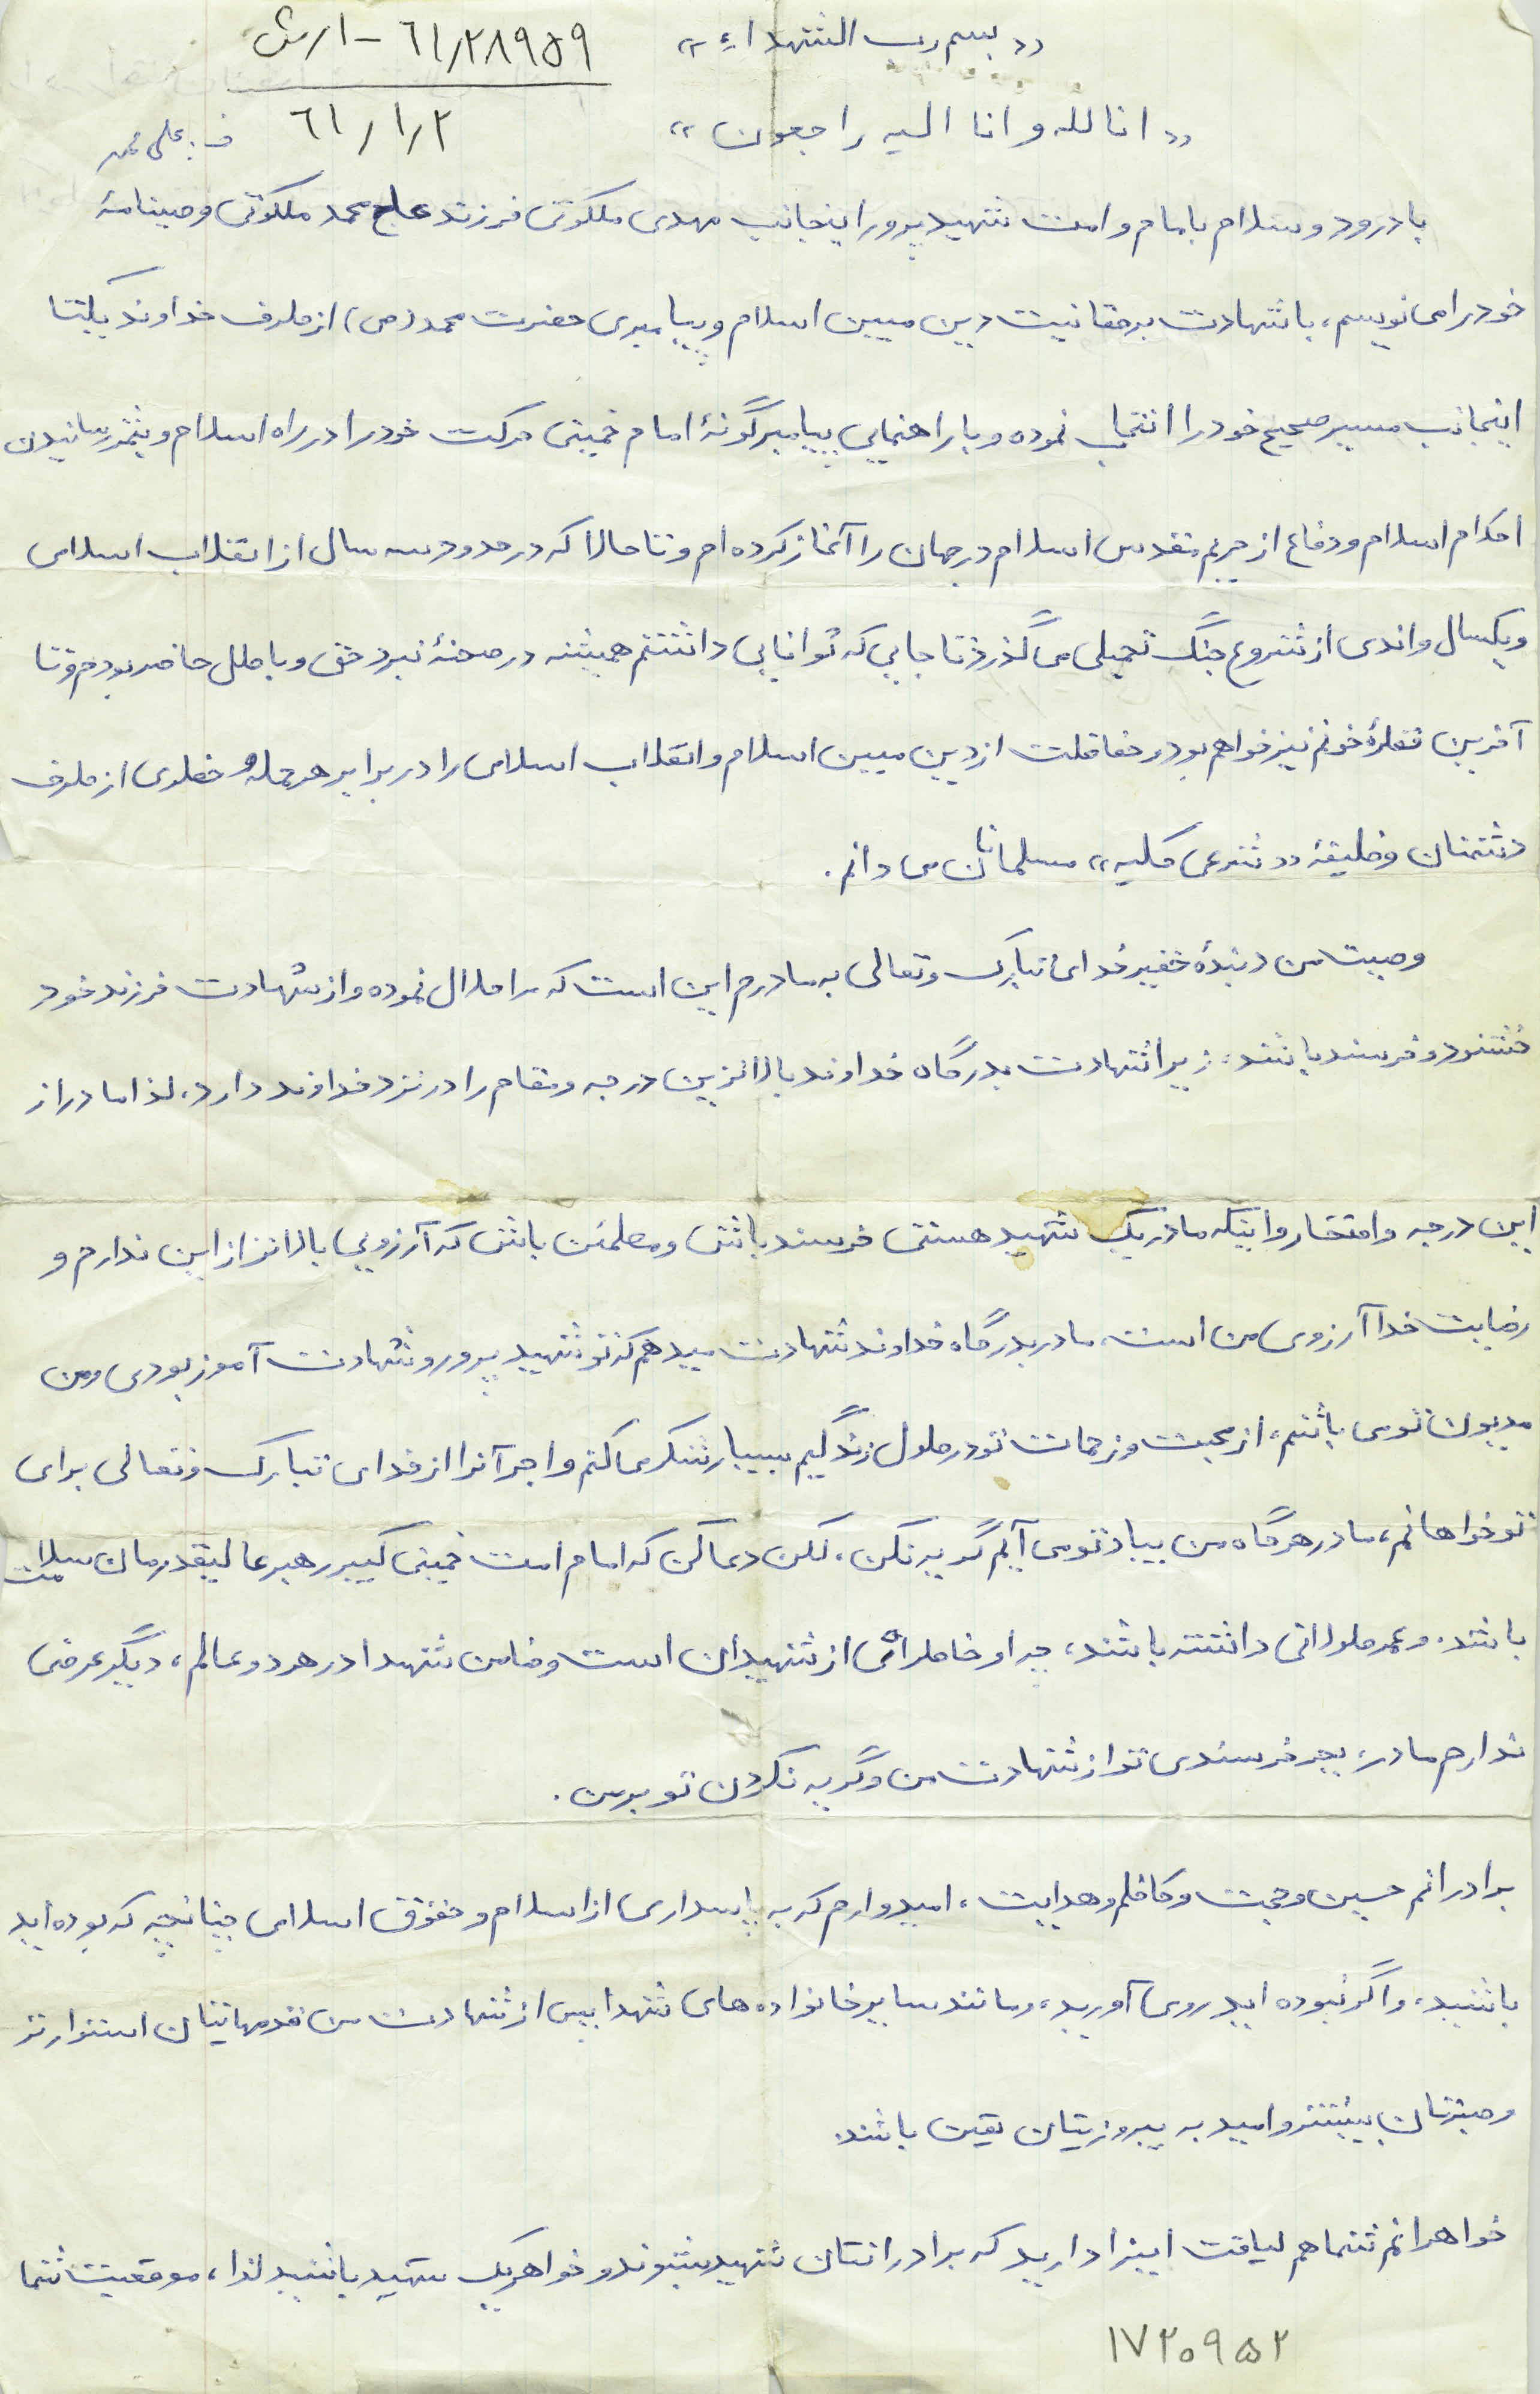 «بسم رب الشهداء»
۶۱/۲۸۹۵۹ - ا/رش
«انا لله و انا الیه راجعون»
۶۱/۱/۲
با درود و سلام بامام و امت شهید پرور اینجانب مهدی ملکوتی فرزند حاج محمد ملکوتی وصیتنامهٔ
خود را می نویسم، با شهادت بر حقانیت دین مبین اسلام و پیامبری حضرت محمد (ص) از طرف خداوند یکتا
اینجانب مسیر صحیح خود را انتخاب نموده و با راهنمایی پیامبرگونهٔ امام خمینی حرکت خود را در راه اسلام و بثمر رسانیدن
احکام اسلام و دفاع از حریم مقدس اسلام در جهان را آغاز کرده ام و تا حالا که در حدود سه سال از انقلاب اسلامی
و یکسال و اندی از شروع جنگ تحمیلی می گذرد تا جایی که توانایی داشتم همیشه در صحنهٔ نبرد حق و باطل حاضر بودم و تا
آخرین قطرهٔ خونم نیز خواهم بود و حفاظت از دین مبین اسلام و انقلاب اسلامی را در برابر هر حمله و خطری از طرف
دشمنان وظیفهٔ «شرعی کلیه» مسلمانان می دانم.
وصیت من بندهٔ حقیر خدای تبارک و تعالی به مادرم این است که مرا حلال نموده و از شهادت فرزند خود
خشنود و خرسند باشد، زیرا شهادت بدرگاه خداوند بالاترین درجه و مقام را در نزد خداوند دارد، لذا مادر از
این درجه و افتخار و اینکه مادر یک شهید هستی خرسند باش و مطمئن باش که آرزویی بالاتر از این ندارم و
رضایت خدا آرزوی من است، مادر بدرگاه خداوند شهادت میدهم که تو شهید پرور و شهادت آموز بودی و من
مدیون تو می باشم، از محبت و زحمات تو در طول زندگیم بسیار تشکر می کنم و اجر آنرا از خدای تبارک و تعالی برای
تو خواهانم، مادر هرگاه من بیاد تو می آیم گریه نکن، لکن دعا کن که امام امت خمینی کبیر رهبر عالیقدرمان سلامت
باشد، و عمر طولانی داشته باشند، چه او خاطراتی از شهیدان است و ضامن شهدا در هر دو عالم، دیگر عرضی
ندارم مادر، بجز خرسندی تو از شهادت من و گریه نکردن تو بر من.
برادرانم حسین و حجت و کاظم و هدایت، امیدوارم که به پاسداری از اسلام و حقوق اسلامی چنانچه که بوده اید
باشید، و اگر نبوده اید روی آورید، و مانند سایر خانواده های شهدا پس از شهادت من قدمهایتان استوارتر
و صبرتان بیشتر و امید به پیروزیتان یقین باشد.
خواهرانم شما هم لیاقت اینرا دارید که برادرانتان شهید بشوند و خواهر یک شهید باشید لذا، موقعیت شما
۱۷۲۰۹۵۲